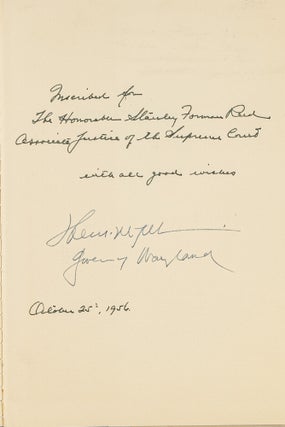 Inscribed for
The Honorable Stanley Forman Reed
Associate Justice of the Supreme Court
with all good wishes
Gov. of Maryland
October 25, 1956.